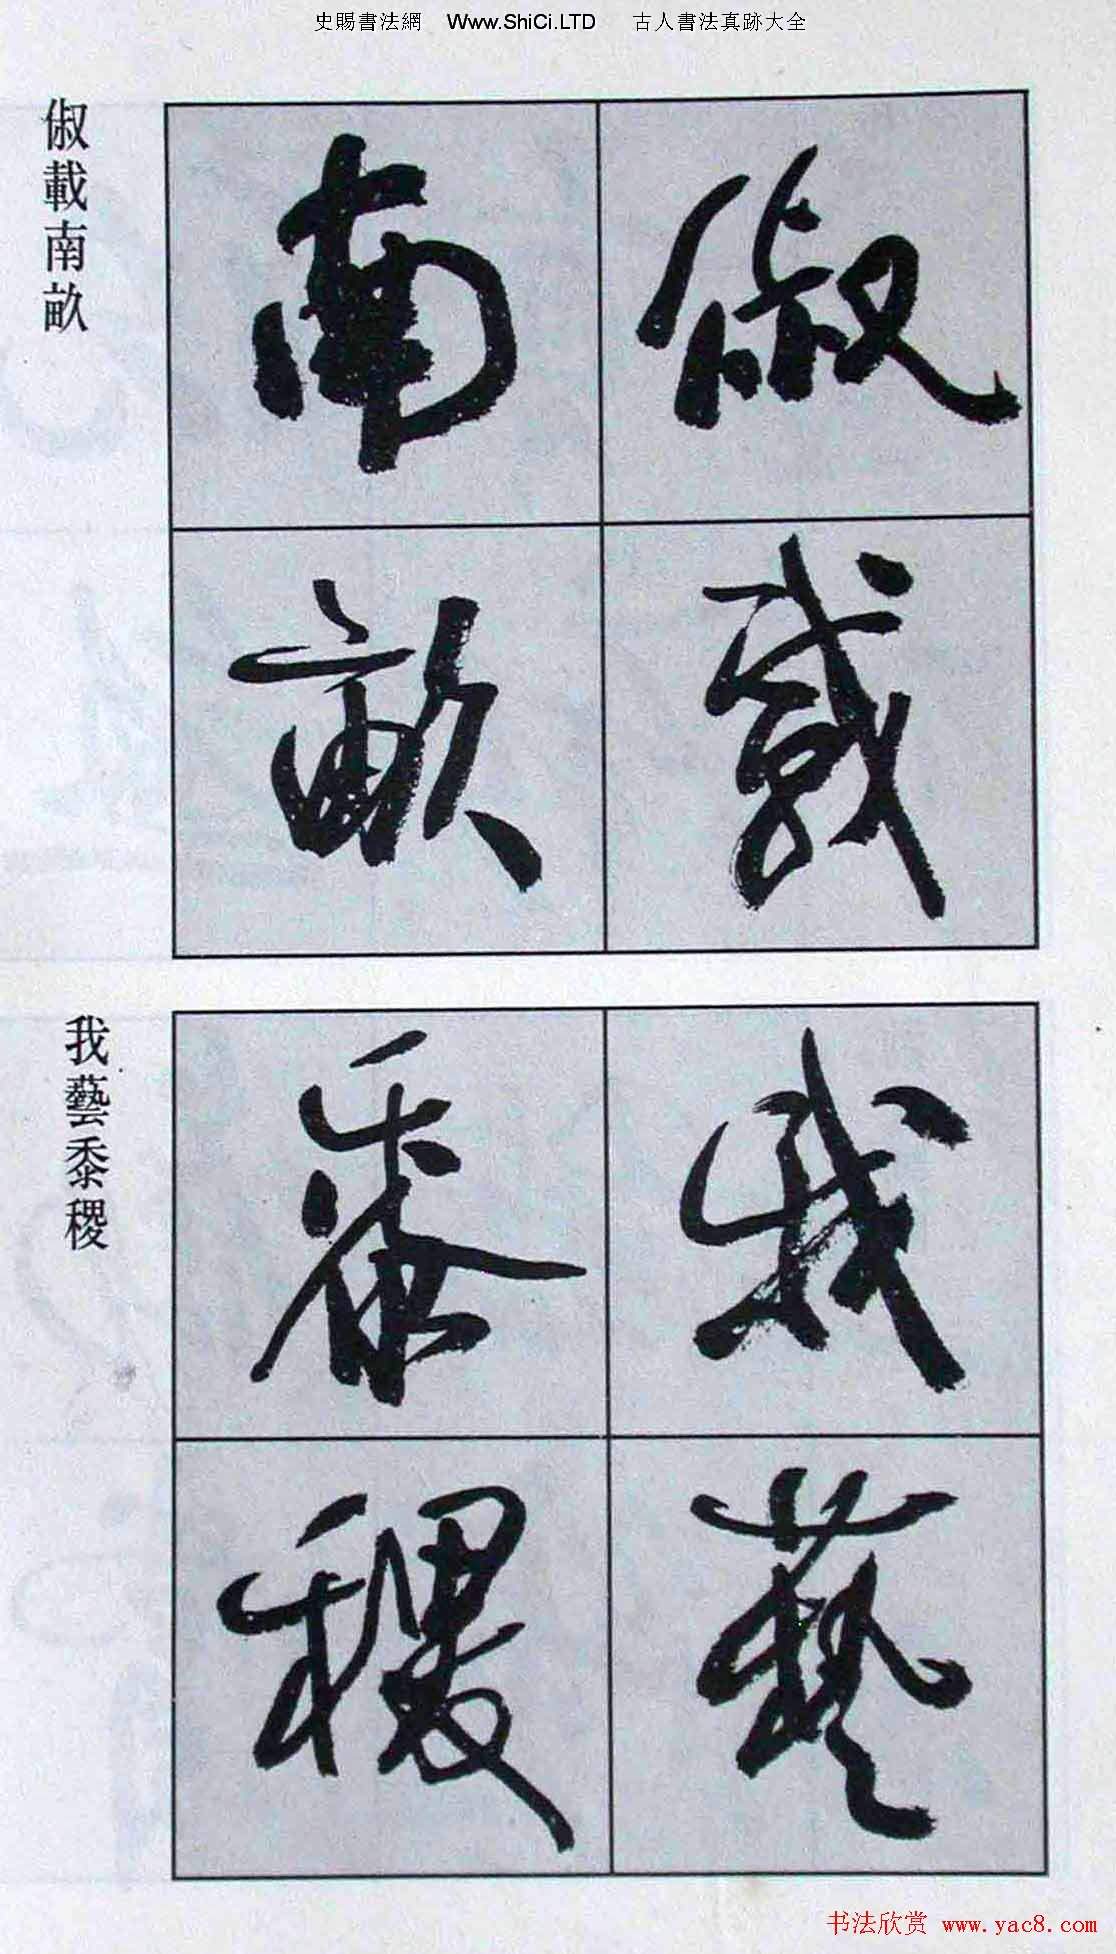 史賜書法網 Www.ShiCi.LTD 古人書法真跡大全
俶載南畝
俶載
南畝
我藝黍稷
我藝
黍稷
书法欣赏 www.yac8.com